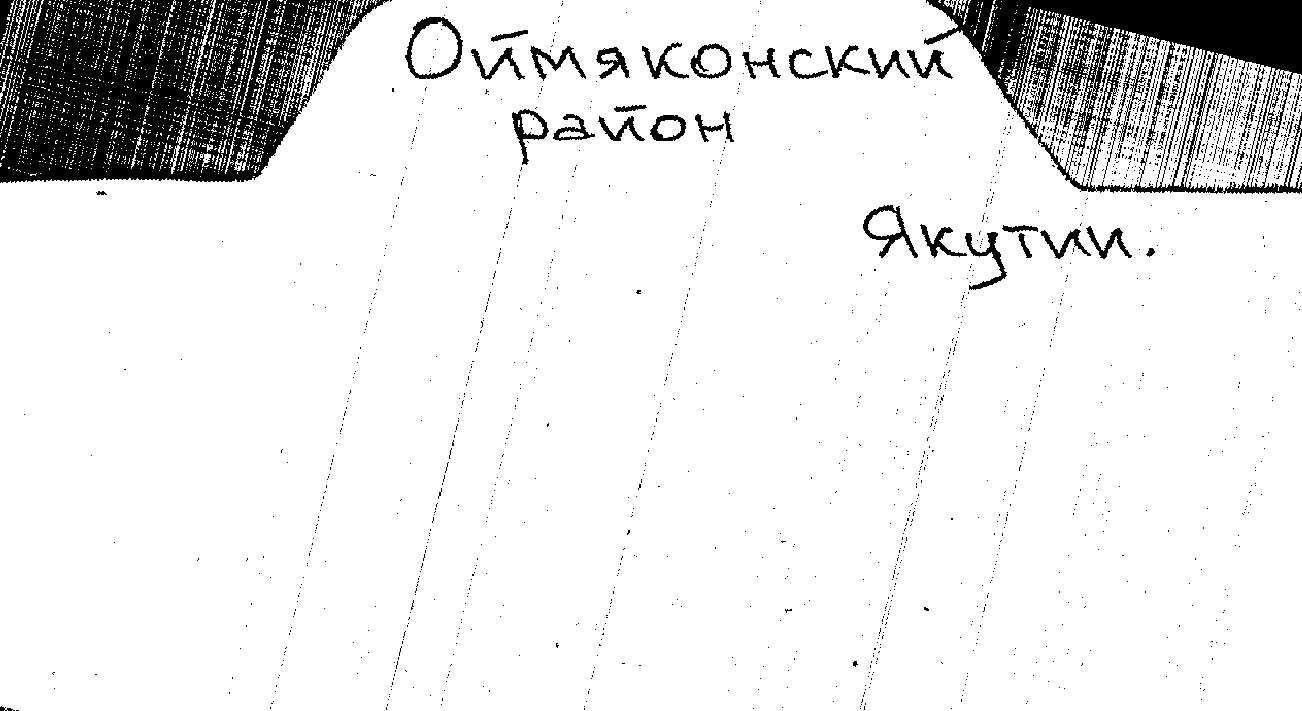 Оймяконский
район
Якутии.